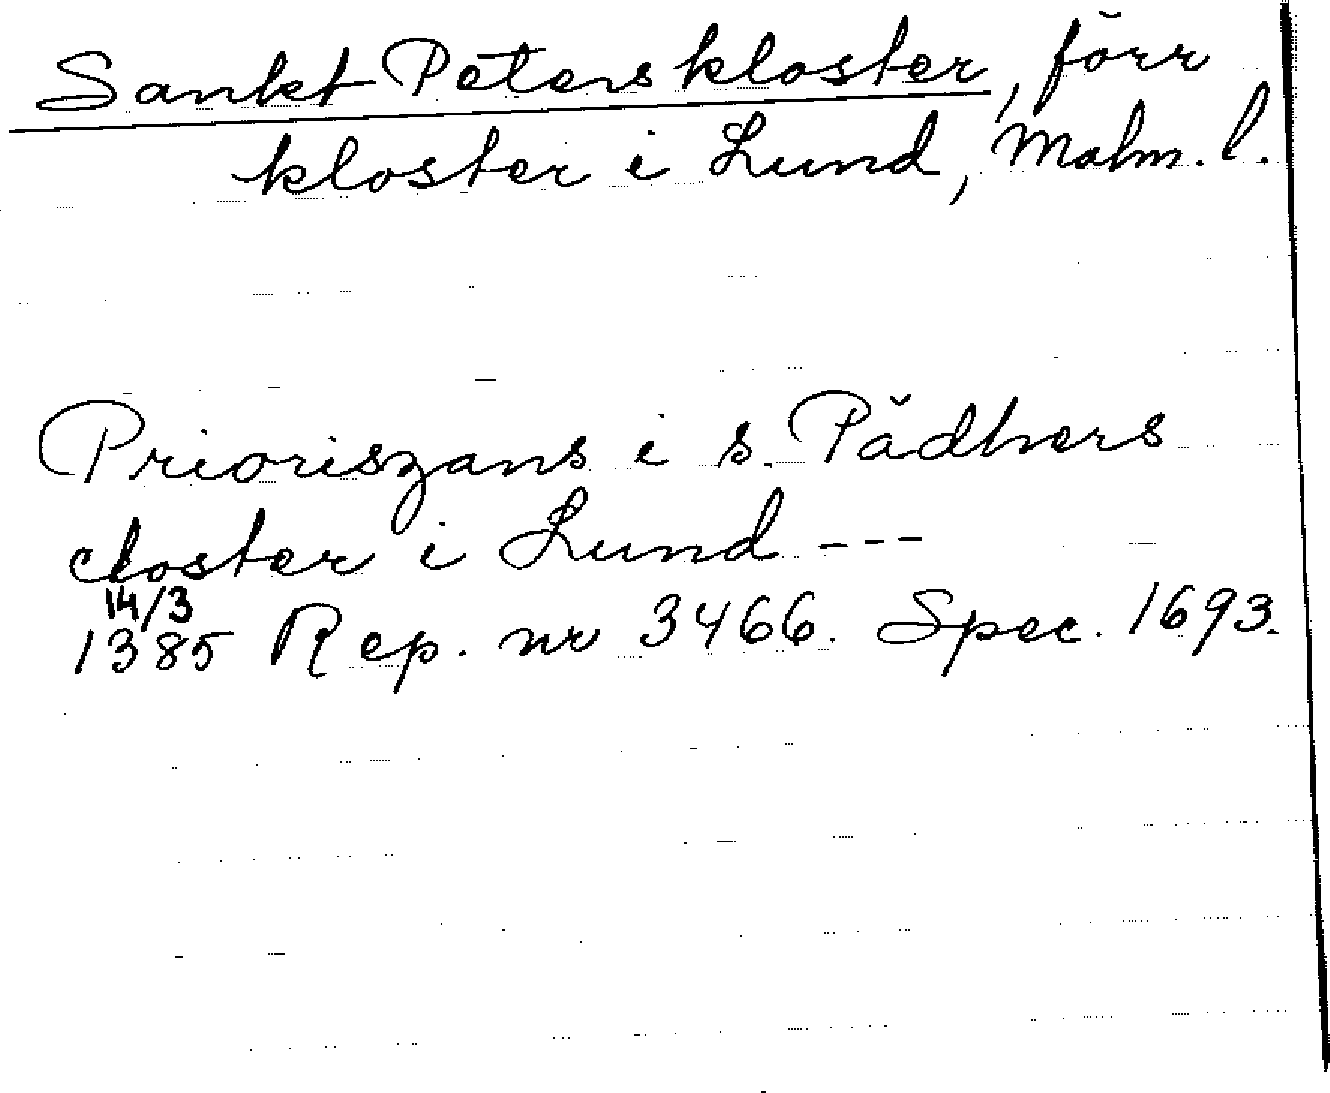 Sankt Peters kloster, förr
kloster i Lund, Malm. l.
Prioriszans i s. Pädhers
closter i Lund ---
14/3
1385 Rep. nr 3466. Spec. 1693.